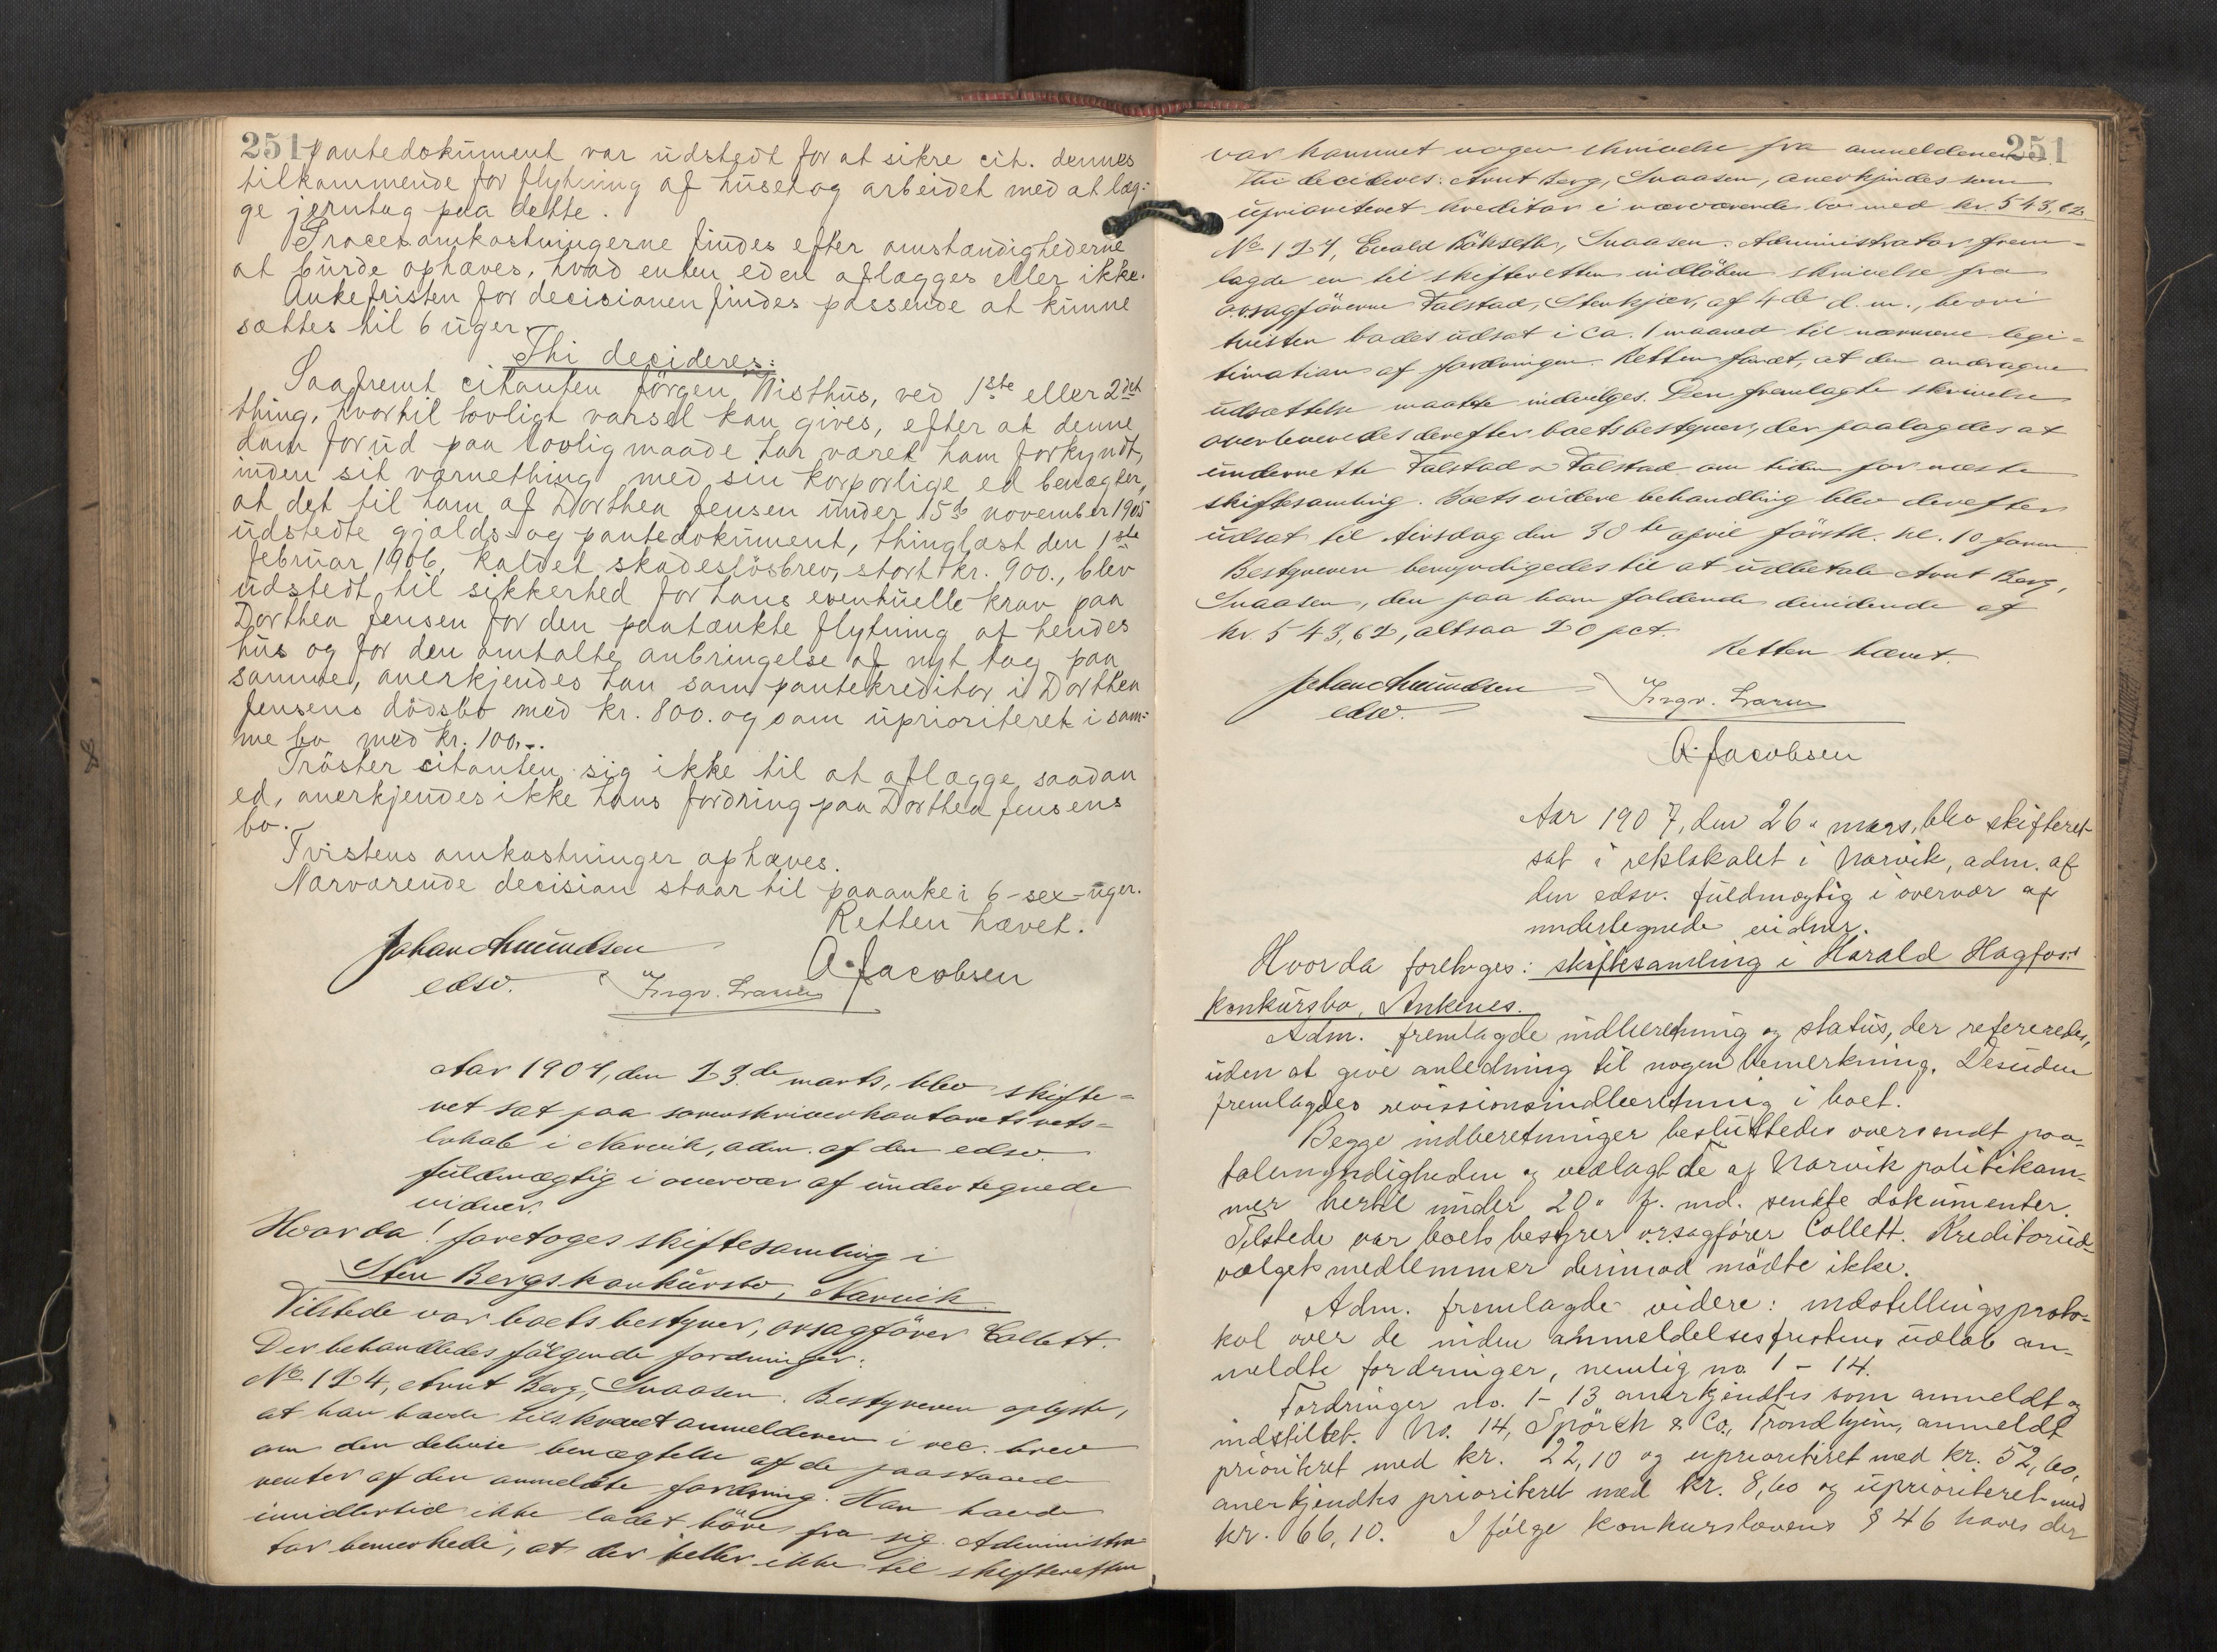 251
pantedokument var udstedt for at sikre cit. dennes
tilkommende for flytning af huset og arbeidet med at læg-
ge jerntag paa dette.
Procesomkostningerne findes efter omstændighederne
at burde ophæves, hvad enten eden aflægges eller ikke.
Ankefristen for decisionen findes passende at kunne
sættes til 6 uger.
Thi decideres:
Saafremt citanten Jörgen Nisthus, ved 1ste eller 2det
thing, hvortil lovligt varsel kan gives, efter at denne
dom forud paa lovlig maade har været ham forkyndt,
inden sit værnething med sin korporlige ed benægter,
at det til ham af Dorthea Jensen under 15de november 1905
udstedte gjælds- og pantedokument, thinglæst den 1ste
februar 1906, kaldet skadeslösbrev, stort kr. 900., blev
udstedt til sikkerhed for hans eventuelle krav paa
Dorthea Jensen for den paatænkte flytning af hendes
hus og for den omtalte anbringelse af nyt tag paa
samme, anerkjendes han som pantekreditor i Dorthea
Jensens dödsbo med kr. 800. og som uprioriteret i sam-
me bo med kr. 100,-.
Tröster citanten sig ikke til at aflægge saadan
ed, anerkjendes ikke hans fordring paa Dorthea Jensens
bo.
Tvistens omkostninger ophæves.
Nærværende decision staar til paaanke i 6-sex-uger.
Retten hævet.
Johan Amundsen
edsv.
Ingv. Larsen
A. Jacobsen
Aar 1907, den 23.de marts, blev skifte-
ret sat paa sorenskriverkontorets rets-
lokale i Narvik, adm. af den edsv.
fuldmægtig i overvær af undertegnede
vidner.
Hvorda! foretoges skiftesamling i
Sten Bergs konkursbo, Narvik.
Tilstede var boets bestyrer, orsagförer Collett.
Der behandledes fölgende fordringer:
No 124, Arnt Berg, Snaasen. Bestyreren oplyste,
at han havde tilskrevet anmelderen i rec. brev
om den delvise benægtelse af de paastaaede
renter af den anmeldte fordring. Han havde
imidlertid ikke ladet höre fra sig. Administra-
tor bemerkede, at der heller ikke til skifteretten
251
var kommet nogen skrivelse fra anmelderen.
Thi decideres: Arnt Berg, Snaasen, anerkjendes som
uprioriteret kreditor i nærværende bo med kr. 543,62.
No 127, Evald Bökseth, Snaasen. Administrator frem-
lagde en til skifteretten indlöben skrivelse fra
orsagförerne Falstad, Stenkjær, af 4de d.m., hvori
tvisten bades udsat i ca. 1 maaned til nærmere legi-
timation af fordringen. Retten fandt, at den andragne
udsættelse maatte indvilges. Den fremlagte skrivelse
overleveredes derefter boets bestyrer, der paalagdes at
underrette Falstad & Falstad om tiden for næste
skiftesamling. Boets videre behandling blev derefter
udsat til tirsdag den 30te april förstk. kl. 10 form.
Bestyreren bemyndigedes til at udbetale Arnt Berg,
Snaasen, den paa ham faldende dividende af
kr. 543,62, altsaa 20 pct.
Retten hævet.
Johan Amundsen
edsv.
Ingv. Larsen
A. Jacobsen
Aar 1907, den 26. mars, blev skifteret
sat i retslokalet i Narvik, adm. af
den edsv. fuldmægtig i overvær af
undertegnede vidner.
Hvorda foretoges: skiftesamling i Harald Hagfors
konkursbo, Ankenes.
Adm. fremlagde indberetning og status, der refereredes,
uden at give anledning til nogen bemerkning. Desuden
fremlagdes revissionsindberetning i boet.
Begge indberetninger besluttedes oversendt paa-
talemyndigheden og vedlagt de af Narvik politikam-
mer hertil under 20. f. md. sendte dokumenter.
Tilstede var boets bestyrer orsagfører Collett. Kreditorud-
valgets medlemmer derimod mödte ikke.
Adm. fremlagde videre: indstillingsproto-
kol over de inden anmeldelsesfristens udløb an-
meldte fordringer, nemlig no. 1 - 14.
Fordringer no. 1-13 anerkjendtes som anmeldt og
indstillet. No. 14, Spörck & Co., Trondhjem, anmeldt
prioriteret med kr. 22,10 og uprioritiret med kr. 52,60,
anerkjendtes prioriteret med kr. 8,60 og uprioriteret med
kr. 66,10. Ifølge konkurslovens § 46 haves der